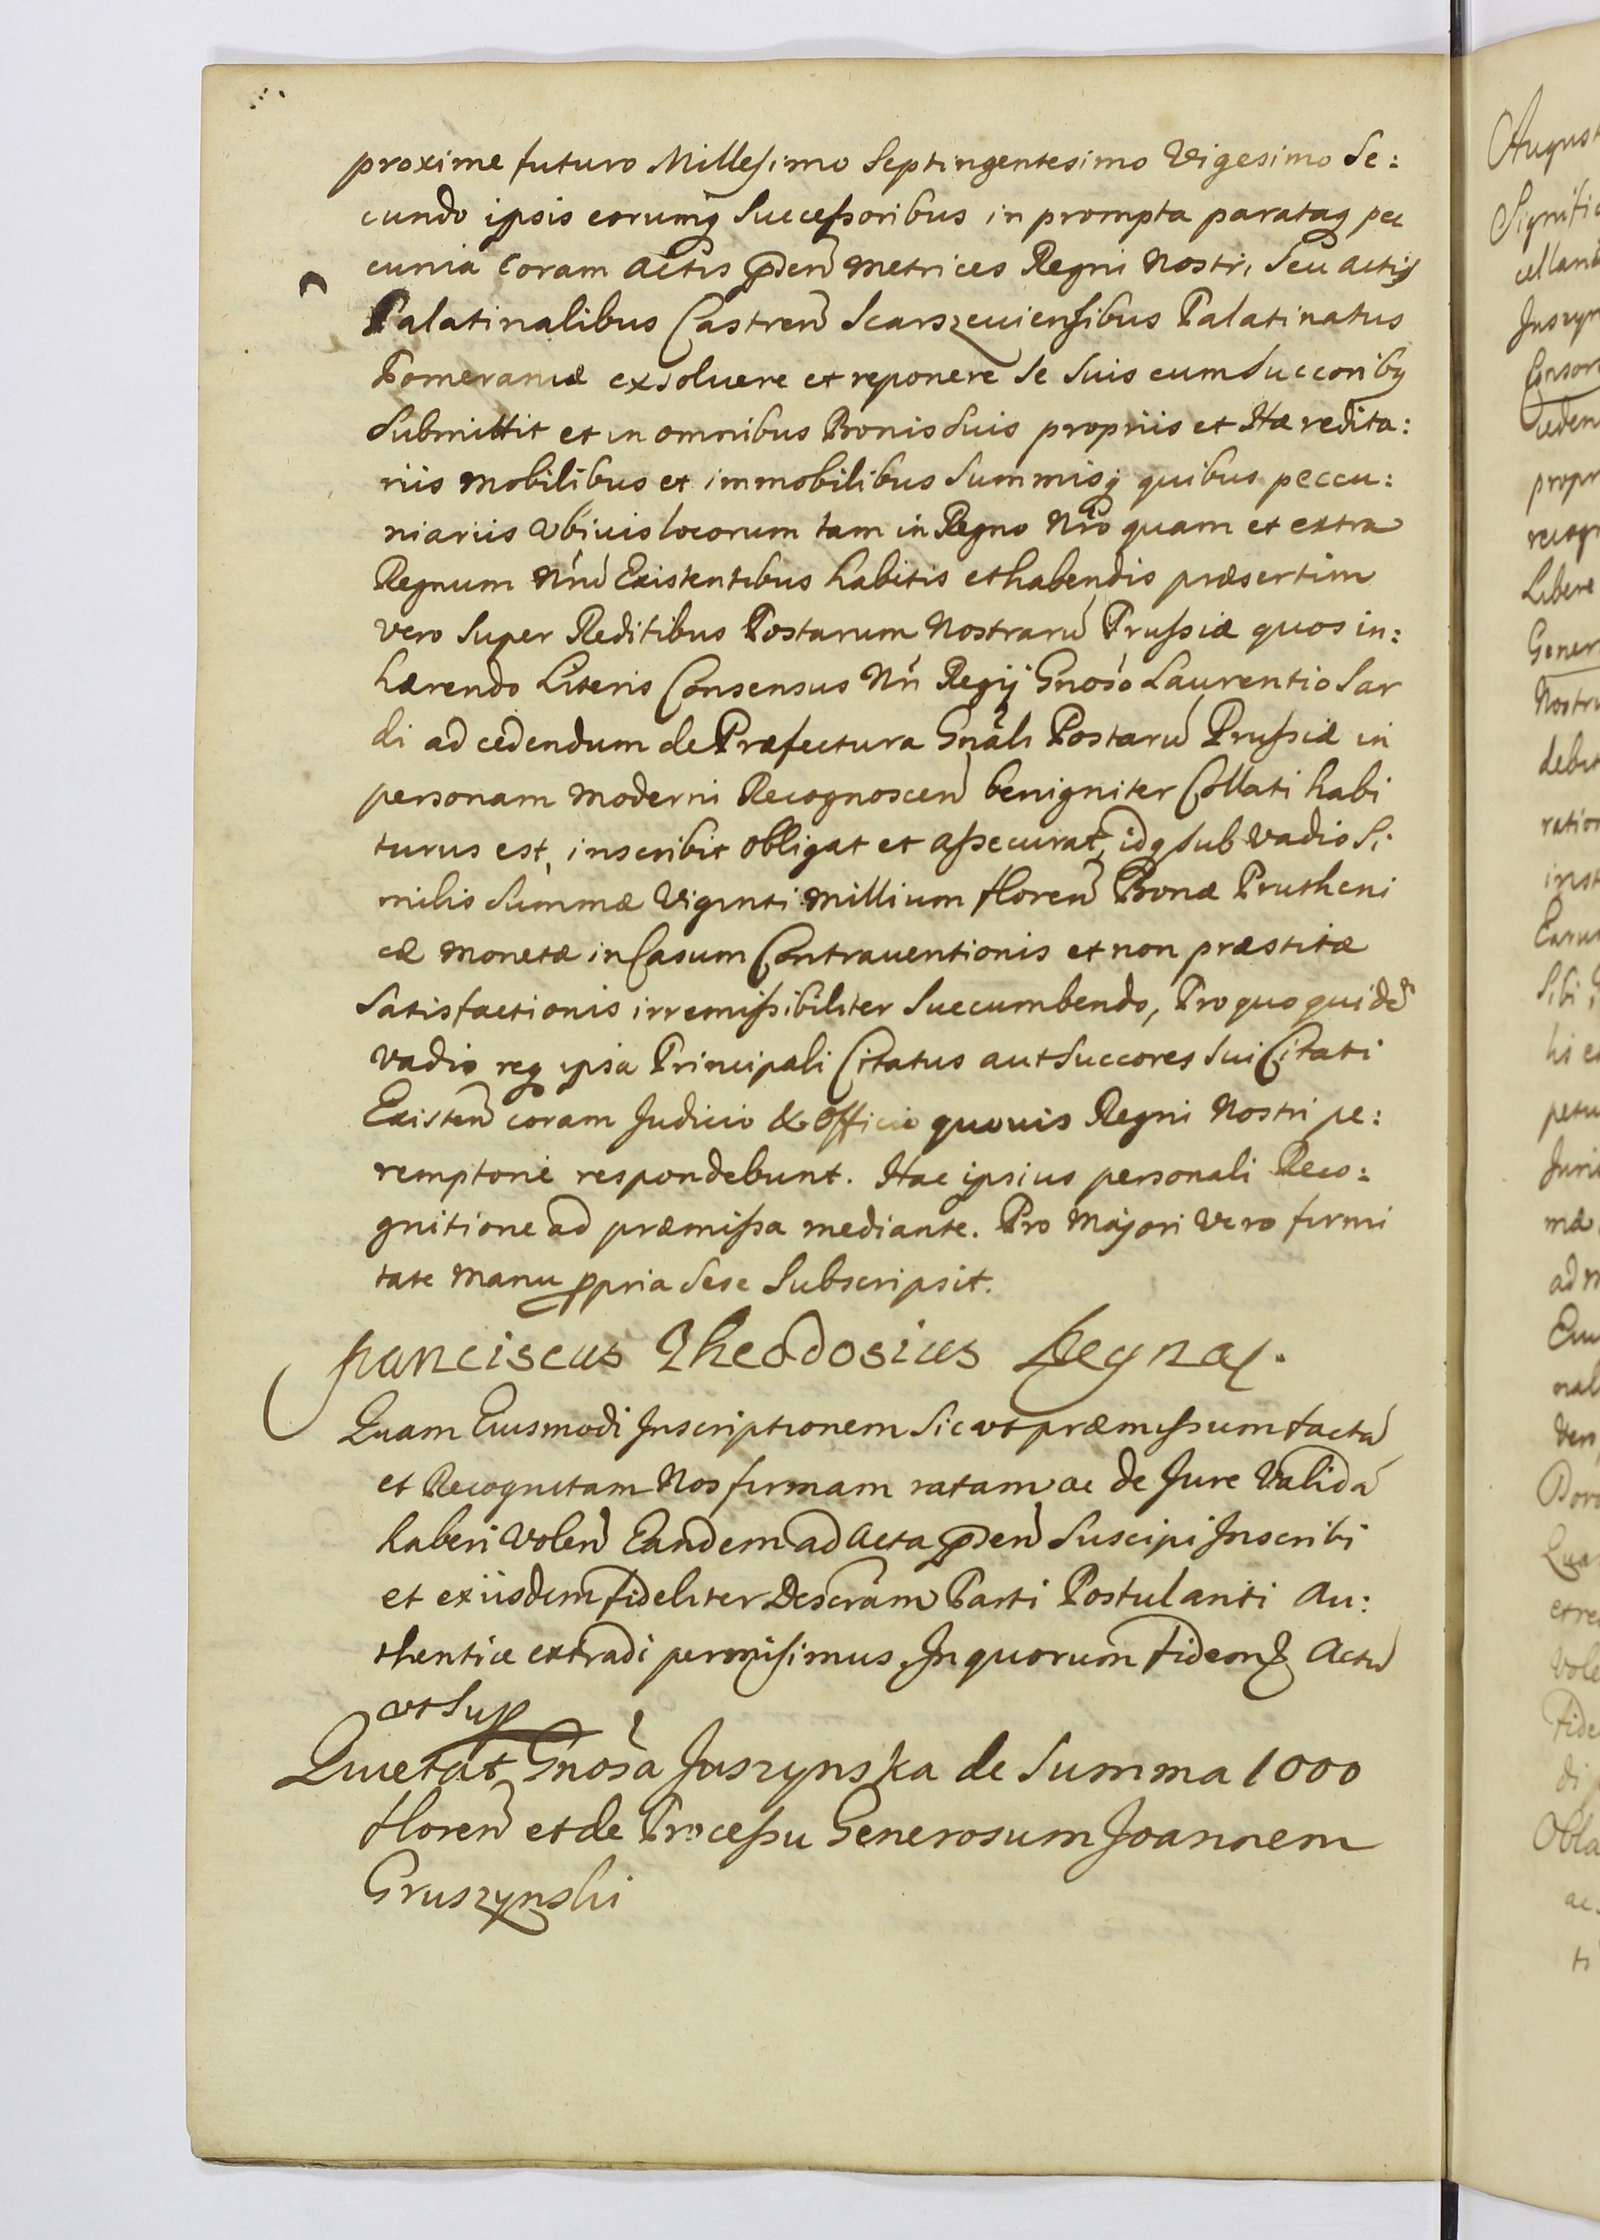 proxime futuro Millesimo Septingentesimo Vigesimo Se:
cundo ipsis eorumq Successoribus in prompta parataq pec
cunia Coram Actis pden Metrices Regni Nostri, Seu Actis
Palatinalibus Castren Scarszeviensibus Palatinatus
Pomeraniæ exsoluere et reponere Se Suis cum Succorib9
Submittit et in omnibus Bonis Suis propriis et Hæredita:
riis Mobilibus et immobilibus Summisq quibus peccu:
niariis Ubiuis locorum tam in Regno Nro quam et extra
Regnum Nrũ Existentibus habitis et habendis præsertim
vero Super Reditibus Postarum Nostrarũ Prussiæ quos in:
hærendo Literis Consensus Nri Regij Gnoso Laurentio Sar
di ad cedendum de Præfectura Gnali Postarũ Prussiæ in
personam Moderni Recognoscen benigniter Collati habi
turus est, inscribit Obligat et Assecurat, idq Sub Vadio Si
milis Summæ Viginti Millium floren Bonæ Prutheni
cæ Monetæ in Casum Contrauentionis et non præstitæ
Satisfactionis irremissibiliter Succumbendo, Pro quo quidē
Vadio req ipsa Principali Citatus aut Succores Sui Citati
Existen coram Judicio & Officio quouis Regni Nostri pe:
remptorie respondebunt. Hac ipsius personali Reco:
gnitione ad præmissa mediante. Pro Majori Vero firmi
tate Manu ppria Sese Subscripsit.
Franciscus Theodosius Regnaz.
Quam Eiusmodi Inscriptionem Sic ut præmissum factã
et Recognitam Nos firmam ratam ac de Jure Validã
haberi Volen Eandem ad Acta pden Suscipi Inscribi
et ex iisdem fideliter Descram Parti Postulanti Au:
thentice extradi permisimus. In quorum Fidem & Actũ
ut Sup
Quietat Gnosa Juszynska de Summa 1000
floren et de Processu Generosum Joannem
Gruszynski
Signific
Nostr
Libere
propr